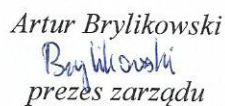 Artur Brylikowski
Brylikowski
prezes zarządu